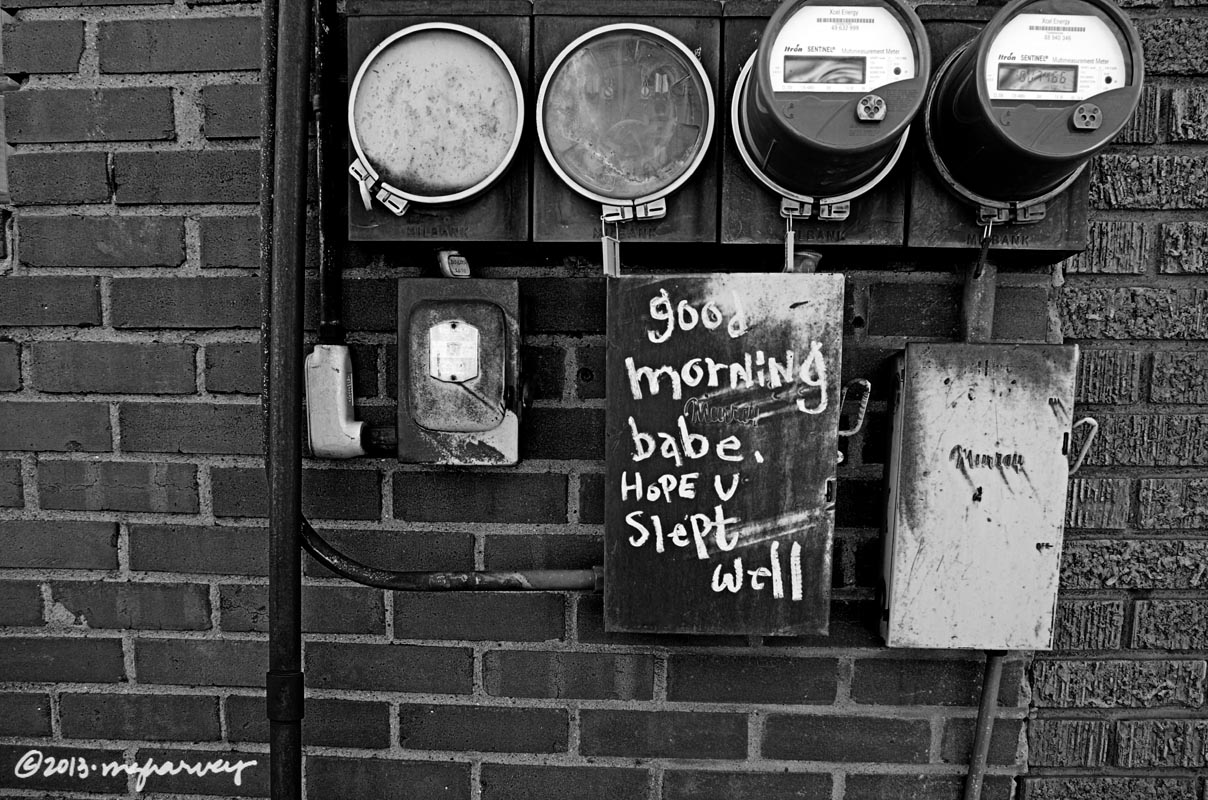 Xcel Energy
Itron SENTINEL® Multimeasurement Meter
Xcel Energy
Itron SENTINEL® Multimeasurement Meter
MILBANK
good
morning
Murray
babe.
HOPE U
slept
well
Murray
©2013